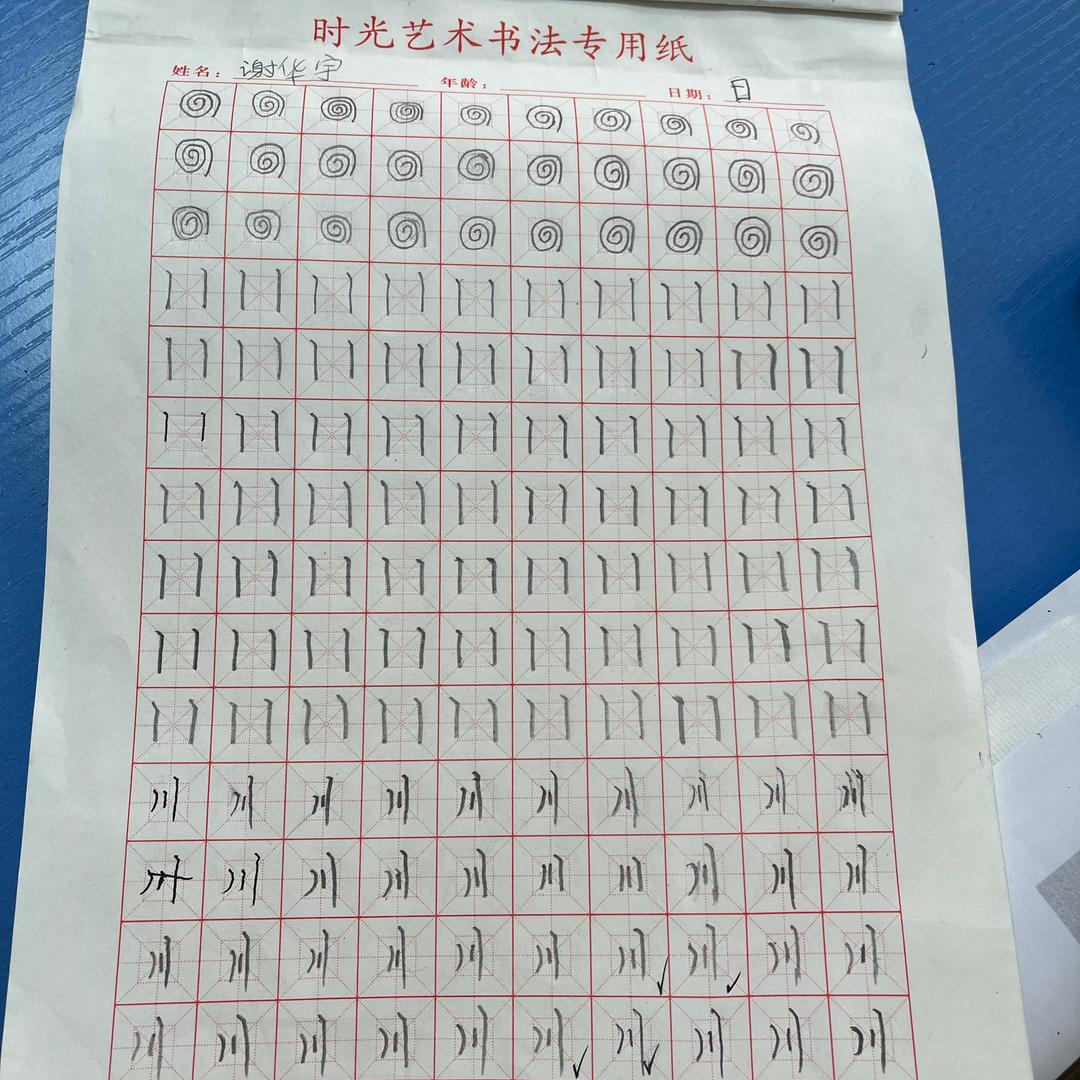 时光艺术书法专用纸
姓名：谢华宇 年龄： 日期：日
川 川 川 川 川 川 川 川 川 川
川 川 川 川 川 川 川 川 川
川 川 川 川 川 川 川 川 川 川
川 川 川 川 川 川 川 川 川 川